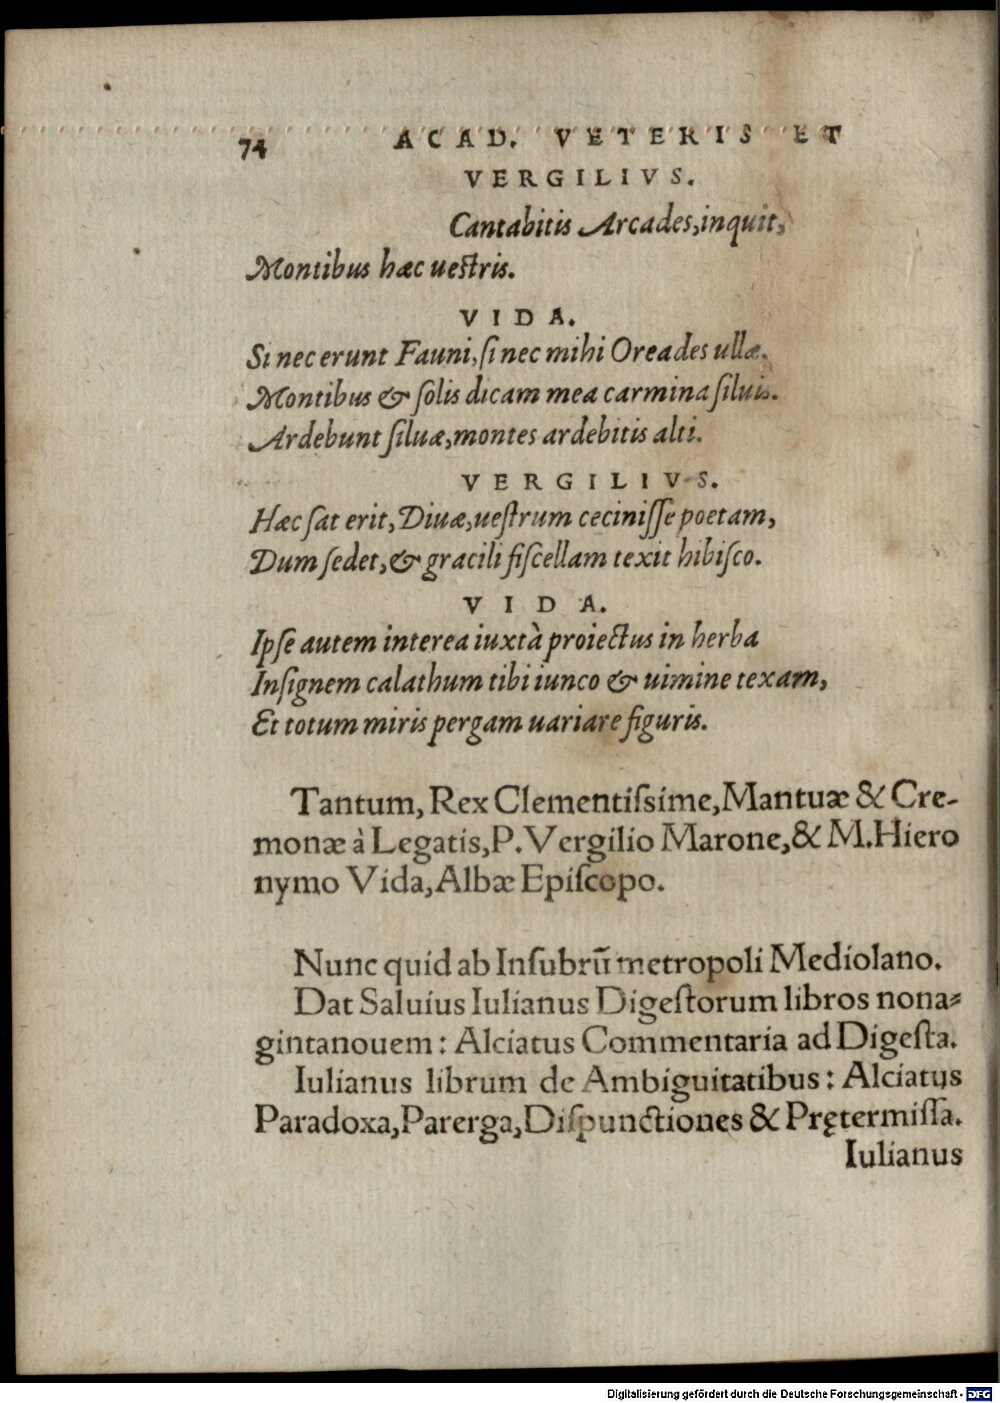 74 ACAD. VETERIS ET
VERGILIVS.
Cantabitis Arcades, inquit,
Montibus hæc ueſtris.
VIDA.
Si nec erunt Fauni, ſi nec mihi Oreades ullæ.
Montibus & ſolis dicam mea carmina ſiluis.
Ardebunt ſiluæ, montes ardebitis alti.
VERGILIVS.
Hæc ſat erit, Diuæ, ueſtrum ceciniſſe poetam,
Dum ſedet, & gracili fiſcellam texit hibiſco.
VIDA.
Ipſe autem interea iuxtà proiectus in herba
Inſignem calathum tibi iunco & uimine texam,
Et totum miris pergam uariare figuris.
Tantum, Rex Clementiſsime, Mantuæ & Cre-
monæ à Legatis, P. Vergilio Marone, & M. Hiero
nymo Vida, Albæ Epiſcopo.
Nunc quid ab Inſubrũ metropoli Mediolano.
Dat Saluius Iulianus Digeſtorum libros nona-
gintanouem: Alciatus Commentaria ad Digeſta.
Iulianus librum de Ambiguitatibus: Alciatus
Paradoxa, Parerga, Diſpunctiones & Prętermiſſa.
Iulianus
Digitalisierung gefördert durch die Deutsche Forschungsgemeinschaft - DFG